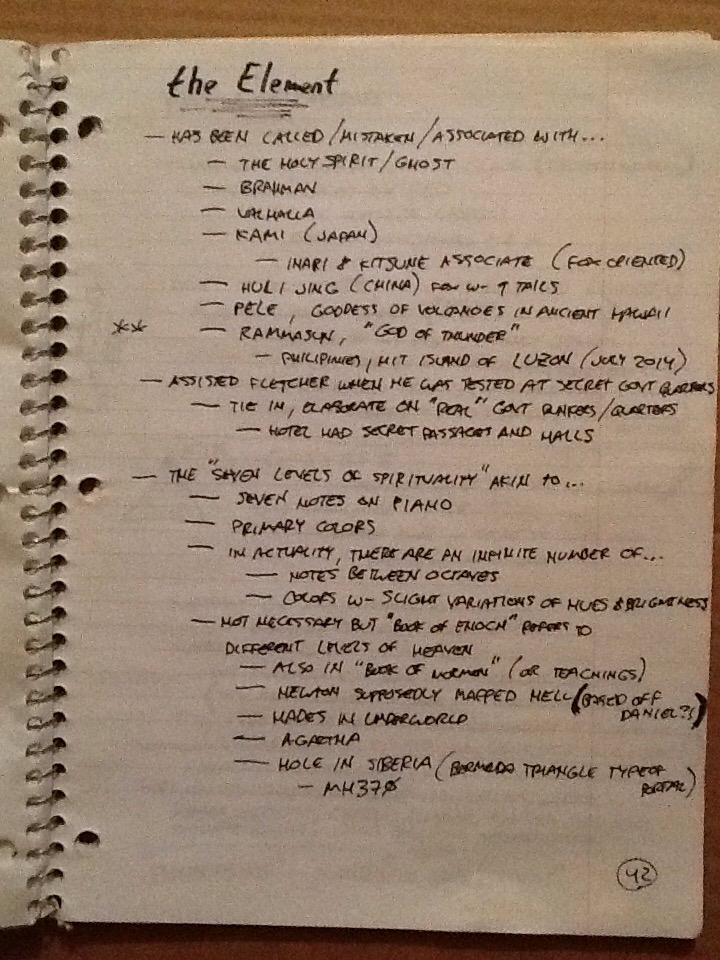 the Element
— HAS BEEN CALLED/MISTAKEN/ASSOCIATED WITH...
— THE HOLY SPIRIT/GHOST
— BRAHMAN
— VALHALLA
— KAMI (JAPAN)
— INARI & KITSUNE ASSOCIATE (FOX ORIENTED)
— HULI JING (CHINA) FOX W- 9 TAILS
— PELE, GODDESS OF VOLCANOES IN ANCIENT HAWAII
** — RAMMASUN, "GOD OF THUNDER"
— PHILIPINES, HIT ISLAND OF LUZON (JULY 2014)
— ASSISTED FLETCHER WHEN HE WAS TESTED AT SECRET GOVT QUARTERS
— TIE IN, ELABORATE ON "REAL" GOVT BUNKERS/QUARTERS
— HOTEL HAD SECRET PASSAGES AND HALLS
— THE "SEVEN LEVELS OF SPIRITUALITY" AKIN TO...
— SEVEN NOTES ON PIANO
— PRIMARY COLORS
— IN ACTUALITY, THERE ARE AN INFINITE NUMBER OF...
— NOTES BETWEEN OCTAVES
— COLORS W- SLIGHT VARIATIONS OF HUES & BRIGHTNESS
— NOT NECESSARY BUT "BOOK OF ENOCH" REFERS TO
DIFFERENT LEVELS OF HEAVEN
— ALSO IN "BOOK OF MORMON" (OR TEACHINGS)
— NEWTON SUPPOSEDLY MAPPED HELL (BASED OFF
DANIEL?)
— HADES IN UNDERWORLD
— AGARTHA
— HOLE IN SIBERIA (BERMUDA TRIANGLE TYPE OF
PORTAL)
— MH370
42